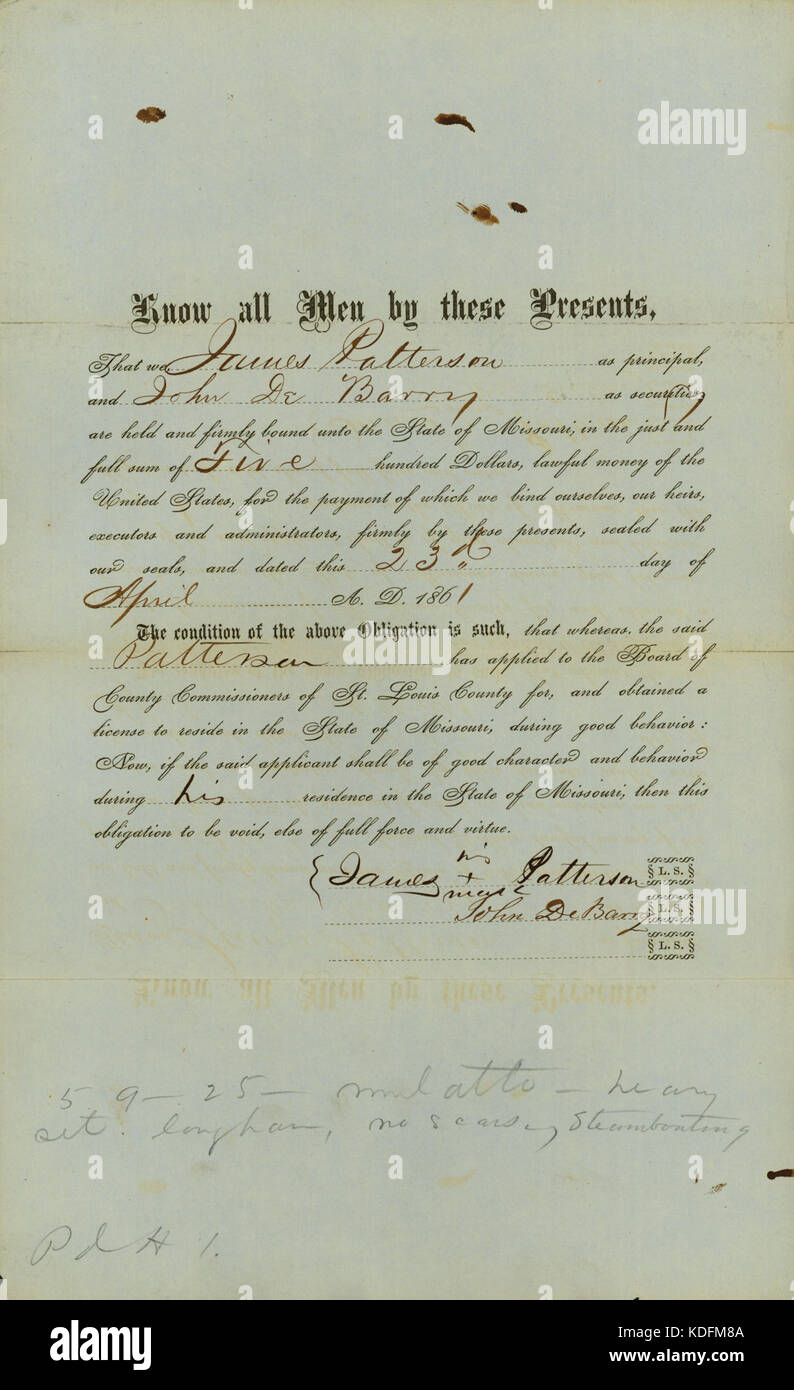 Know all Men by these Presents,
That we James Patterson as principal,
and John De Barry as security
are held and firmly bound unto the State of Missouri, in the just and
full sum of Five hundred Dollars, lawful money of the
United States, for the payment of which we bind ourselves, our heirs,
executors and administrators, firmly by these presents, sealed with
our seals, and dated this 23d day of
April A. D. 1861
The condition of the above Obligation is such, that whereas, the said
Patterson has applied to the Board of
County Commissioners of St. Louis County for, and obtained a
license to reside in the State of Missouri, during good behavior:
Now, if the said applicant shall be of good character and behavior
during his residence in the State of Missouri, then this
obligation to be void, else of full force and virtue.
his
James + Patterson L. S.
mark
John De Barry L. S.
L. S.
5 9 - 25 - mulatto - heavy
set. long hair, no scars, Steamboating
Pd 1.
a alamy
alamy
Image ID: KDFM8A
www.alamy.com